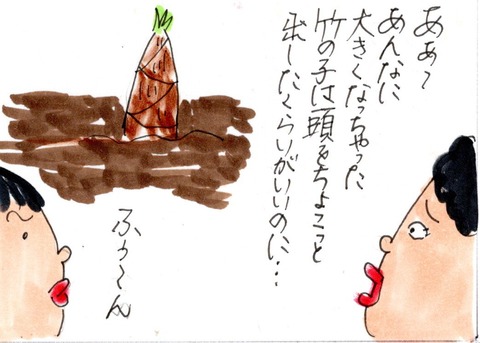 あぁ～
あんなに
大きくなっちゃった
竹の子は頭をちょこっと
出したくらいがいいのに…
ふぅ～ん